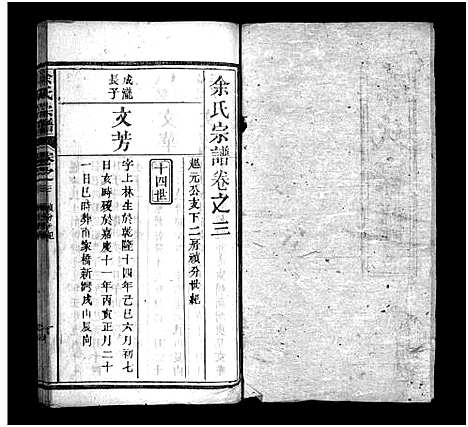 余氏宗譜卷之三
超元公支下二房禎分世紀
十四世
成瀧
長子
文芳
字上林生於乾隆十四年己巳六月初七
日亥時歿於嘉慶十一年丙寅正月二十
一日巳時葬
家橋新灣戌山辰向
余氏宗譜
卷之三